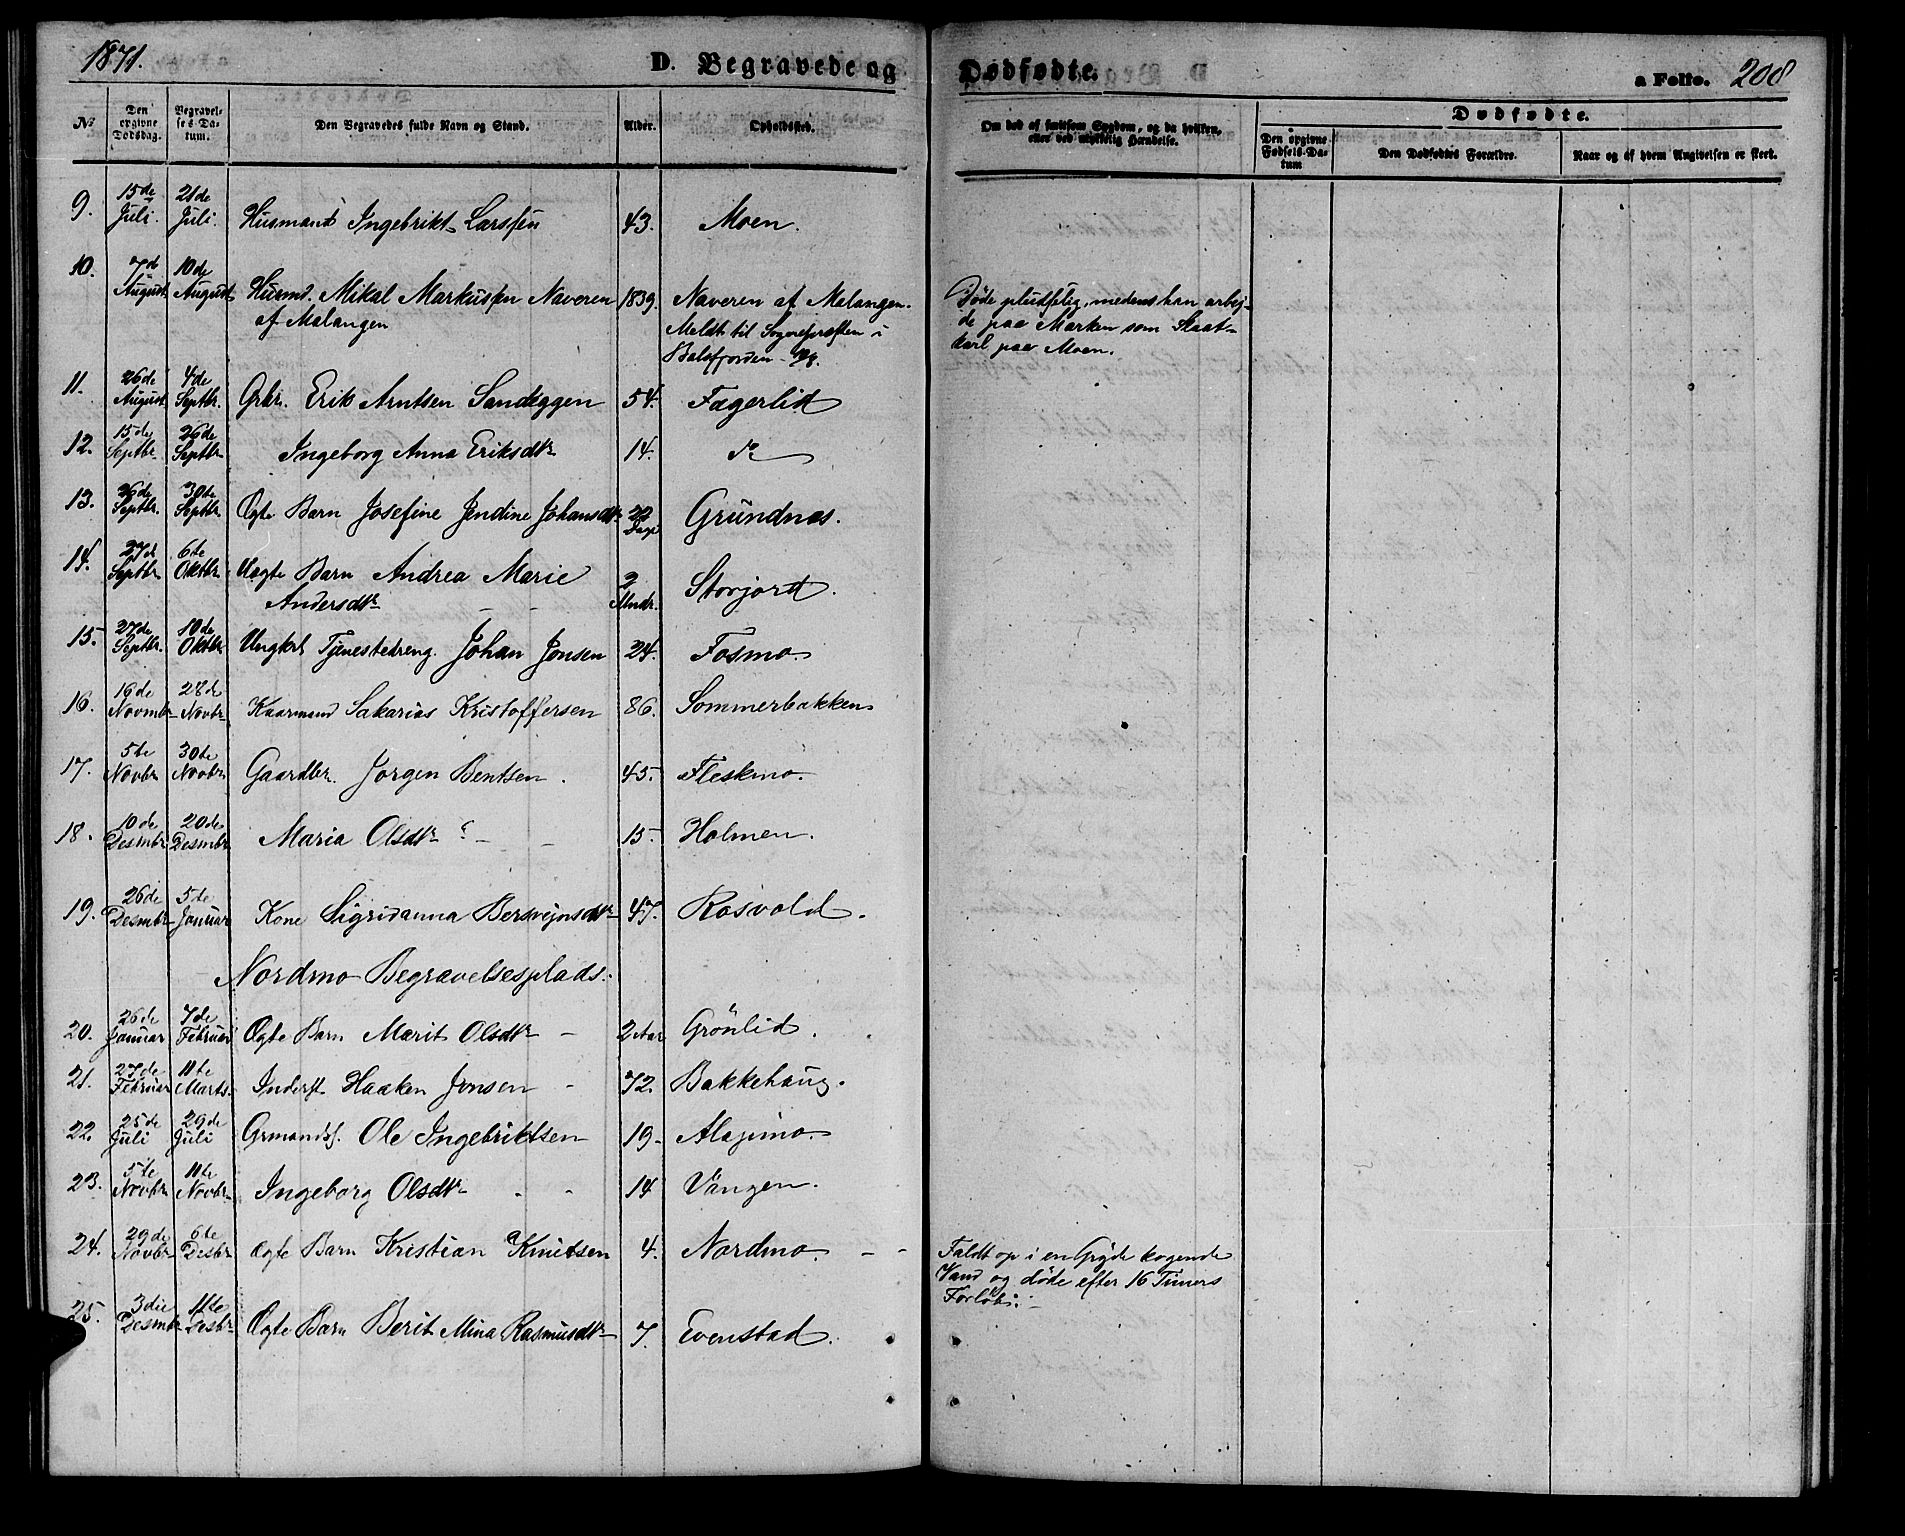 1871.
D. Begravede og Dødfødte. a Folio. 208
No
Den opgivne Dødsdag.
Begravelses Datum.
Den Begravedes fulde Navn og Stand.
Alder.
Opholdssted.
Om død af smitsom Sygdom, og da hvilken, eller ved ulykkelig Hændelse.
Dødfødte.
Den opgivne Fødsels-Datum
Den Dødfødtes Forældre.
Naar og af hvem Angivelsen er skeet.
9. 15de Juli. 21de Juli. Husmand Ingebrikt Larssen 43. Moen.
10. 7d August 10de August Husmd. Mikal Markussen Naveren 1839. Naveren af Malangen.
af Malangen Meldt til Sognepræsten i
Balsfjorden
Døde pludselig, medens han arbej-
de paa Marken som Slaat-
karl paa Moen.
11. 26de August 4de Septbr. Grbr. Erik Arntsen Sandeggen 54. Fagerlid
12. 15de Septbr. 26de Septbr. Ingeborg Anna Eriksdtr 14. do
13. 26de Septbr. 30te Septbr. Ægte Barn Josefine Jendine Johansdtr 22 Dage Grundnæs.
14. 27d Septbr. 6te Oktbr. Uægte Barn Andrea Marie
Andersdtr 2 Mndr. Storjord.
15. 27de Septbr. 10de Oktbr Ungkrl Tjenestedreng. Johan Jonsen 24. Fosmo.
16. 16de Novmbr 28de Novbr Kaarmand Sakarias Kristoffersen 86. Sommerbakken
17. 5te Novbr 30te Novbr Gaardbr. Jorgen Bentsen. 45. Fleskmo.
18. 10de Desmbr 20de Desmbr. Maria Olsdtr 15 Holmen.
19. 26de Desmbr 5te Januar Kone Sigridanna Bersvejnsdtr 47. Rosvold.
Nordmo Begravelsesplads.
20. 26de Januar 7de Februar Ægte Barn Marit Olsdtr 2 Aar Grönlid.
21. 27de Februar 11te Marts. Inderst Haaken Jonsen 72. Bakkehaug.
22. 25de Juli 29de Juli Grmands. Ole Ingebriktsen 19 Alapmo.
23. 5te Novbr 11te Novbr Ingeborg Olsdtr 14 Vangen.
24. 29de Novbr 6te Desbr Ægte Barn Kristian Knutsen 4. Nordmo
Faldt op i en Gryde kogende
Vand og døde efter 16 Timers
Forløb.
25. 3die Desmbr 11te Desbr Ægte Barn Berit Mina Rasmusdtr 7. Evenstad.